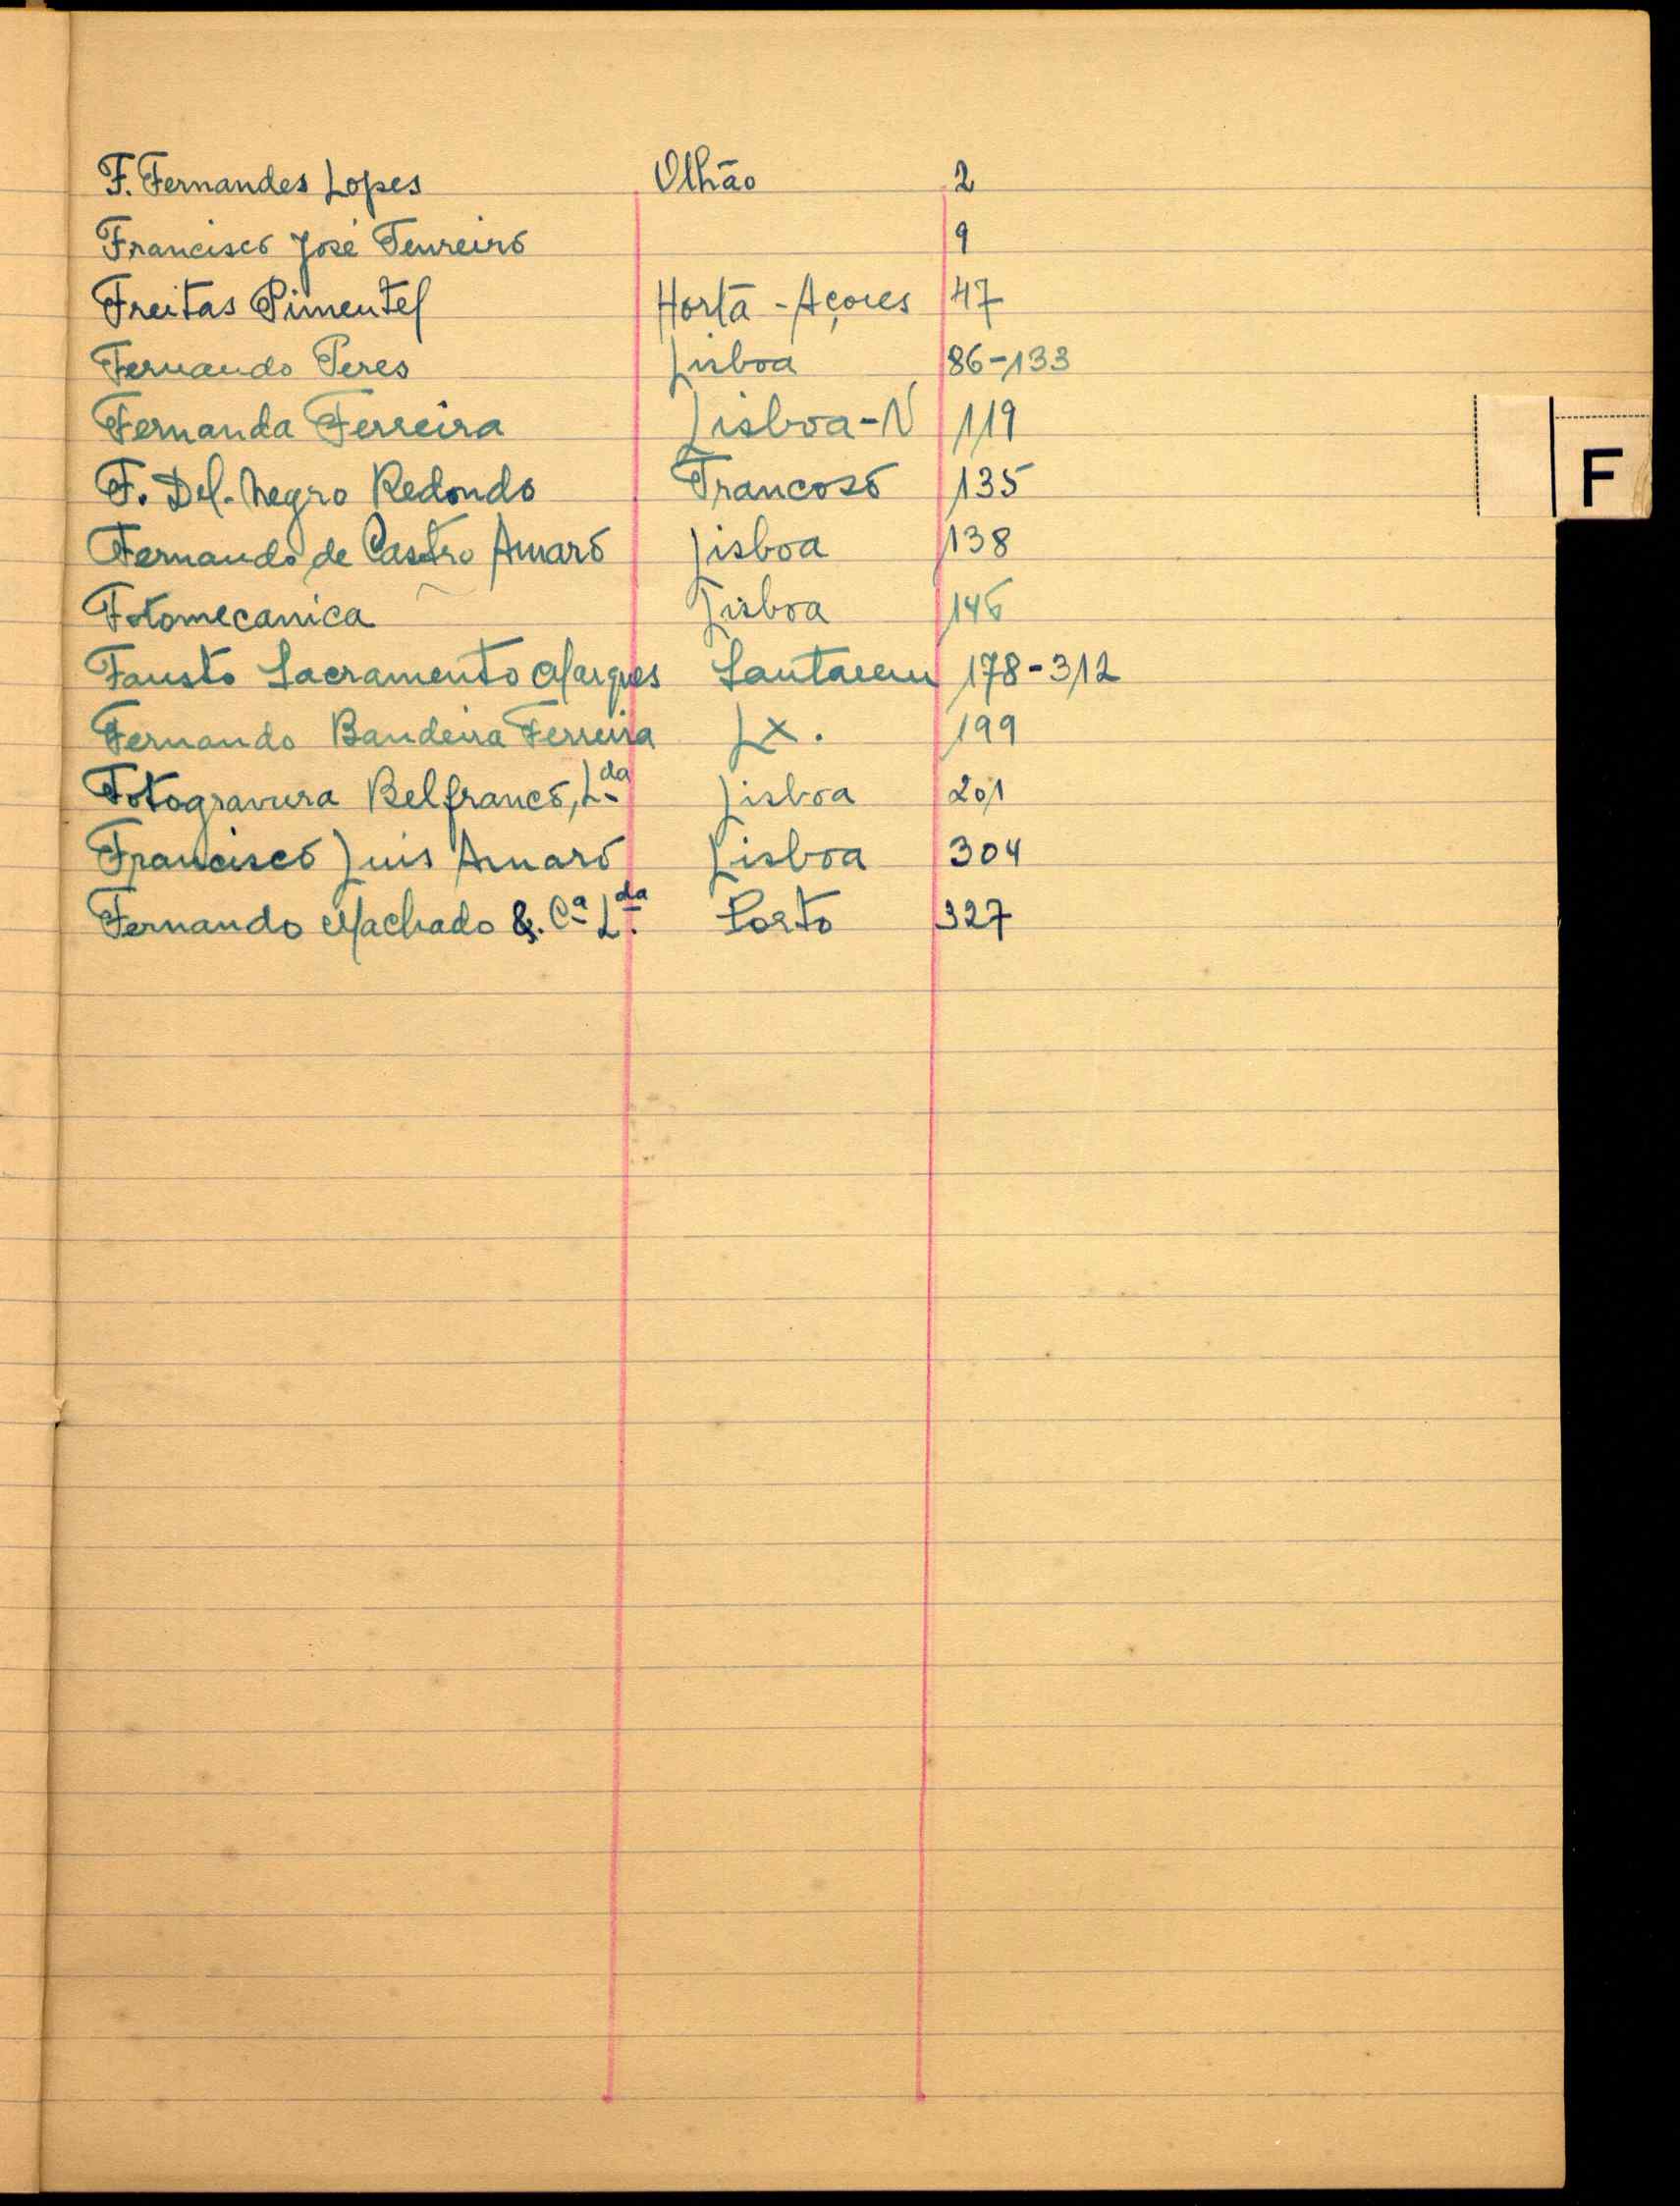 F. Fernandes Lopes Olhão 2
Francisco José Tenreiro 9
Freitas Pimentel Horta - Açores 47
Fernando Peres Lisboa 86-133
Fernanda Ferreira Lisboa-N 119
F
F. Del-Negro Redondo Trancoso 135
Fernando de Castro Amaro Lisboa 138
Fotomecanica Lisboa 146
Fausto Sacramento Marques Santarem 178-312
Fernando Bandeira Ferreira Lx. 199
Fotogravura Belfranco, Lda Lisboa 201
Francisco Luis Amaro Lisboa 304
Fernando Machado &. Cª Lda. Porto 327